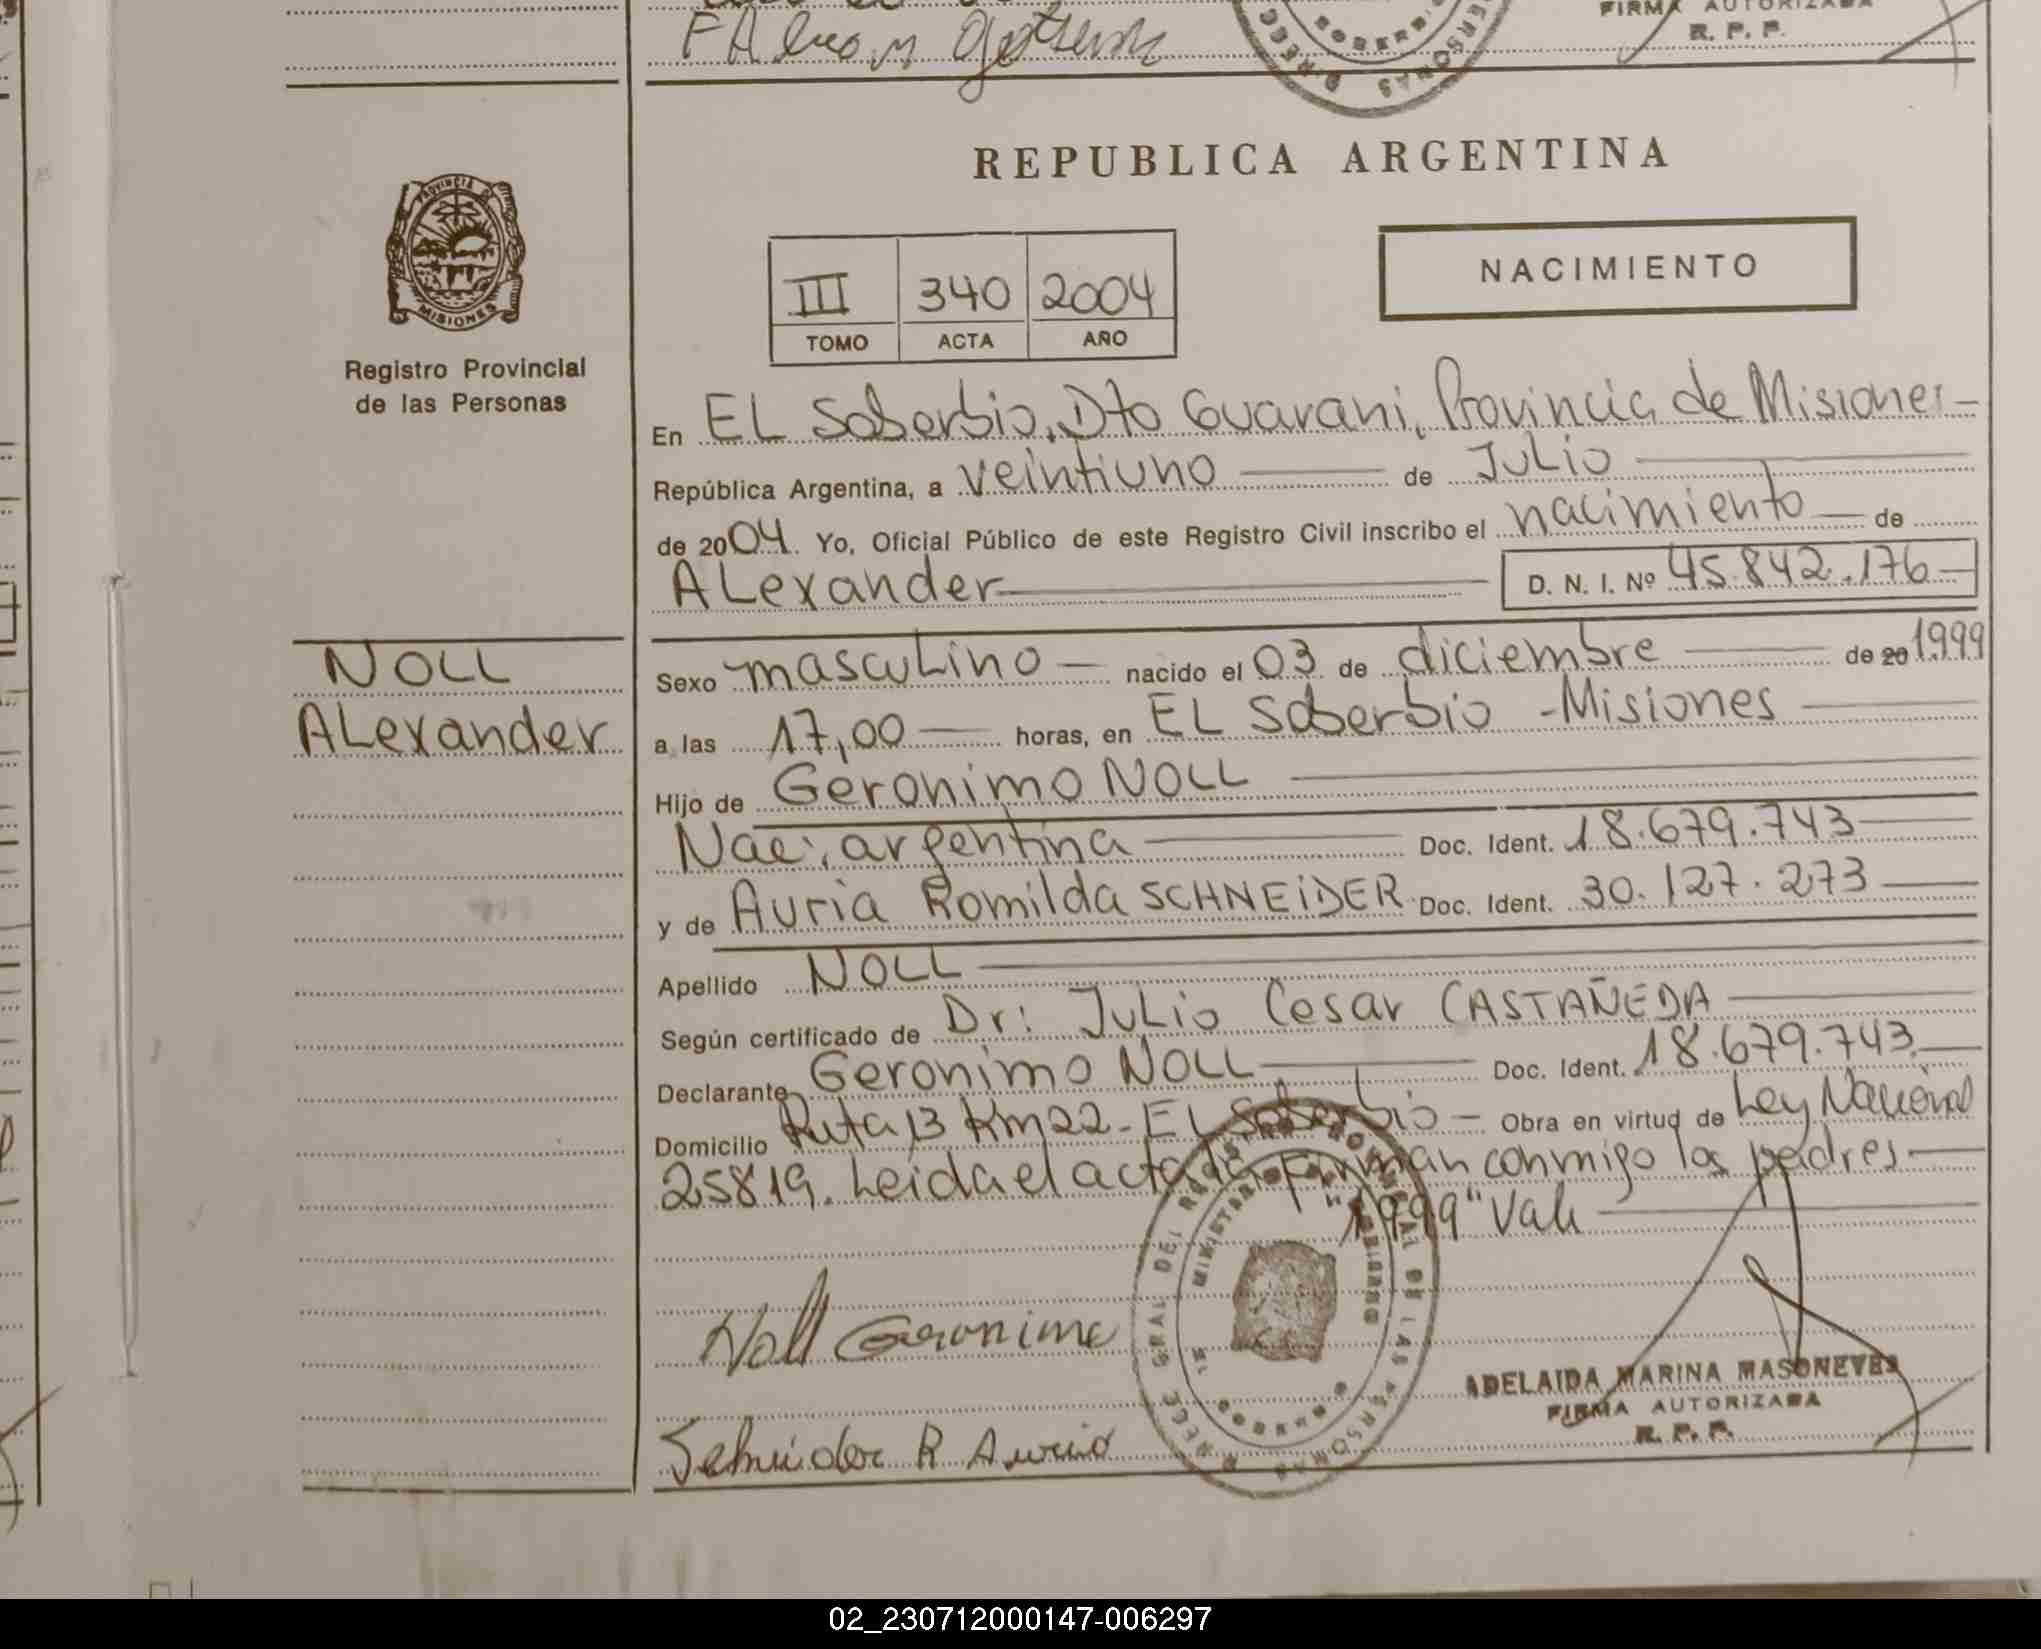 FIRMA AUTORIZADA
R. P. P.
REPUBLICA ARGENTINA
PROVINCIA DE
MISIONES
Registro Provincial
de las Personas
III 340 2004
TOMO ACTA AÑO
NACIMIENTO
En EL Soberbio, Dto Guarani, Provincia de Misiones-
República Argentina, a veintiuno de Julio
de 2004. Yo, Oficial Público de este Registro Civil inscribo el nacimiento de
ALexander D. N. I. Nº 45.842.176
NOLL
ALexander
Sexo mascuLino nacido el 03 de diciembre de 20 1999
a las 17,00 horas, en EL Soberbio -Misiones
Hijo de Geronimo NOLL
Nac: argentina Doc. Ident. 18.679.743
y de Auria Romilda SCHNEIDER Doc. Ident. 30.127.273
Apellido NOLL
Según certificado de Dr: JuLio Cesar CASTAÑEDA
Declarante Geronimo NOLL Doc. Ident. 18.679.743
Domicilio Ruta 13 Km 22- EL Soberbio - Obra en virtud de Ley Nacional
25819. Leida el acta la firman conmigo los padres
"1999" Vale
Noll Geronimo
ADELAIDA MARINA MASONEVES
FIRMA AUTORIZADA
R. P. P.
Schneider R Auria
02_230712000147-006297